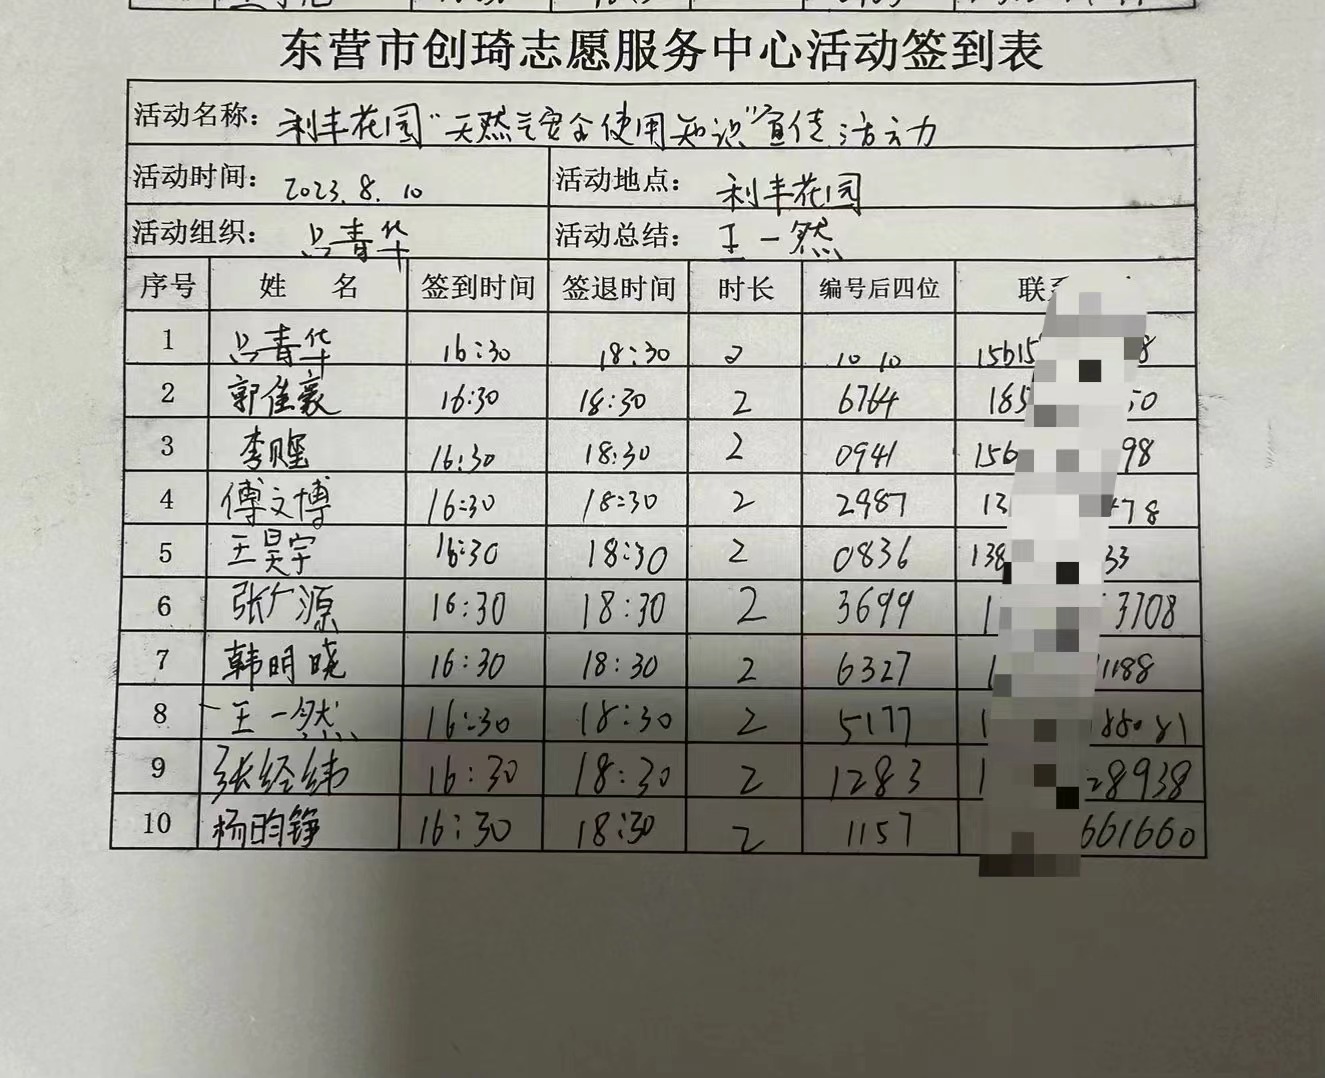 东营市创琦志愿服务中心活动签到表
活动名称：利丰花园“天然气安全使用知识”宣传活动
活动时间：2023.8.10 活动地点：利丰花园
活动组织：吕青华 活动总结：王一然
序号 姓 名 签到时间 签退时间 时长 编号后四位 联系
1 吕青华 16:30 18:30 2 1010 15615 8
2 郭佳豪 16:30 18:30 2 6764 185 50
3 李 16:30 18:30 2 0941 156 98
4 傅文博 16:30 18:30 2 2987 13 478
5 王昊宇 16:30 18:30 2 0836 138 33
6 张广源 16:30 18:30 2 3699 1 3708
7 韩明晓 16:30 18:30 2 6327 1 1188
8 王一然 16:30 18:30 2 5177 1 88081
9 张经纬 16:30 18:30 2 1283 1 28938
10 杨昀铮 16:30 18:30 2 1157 661660